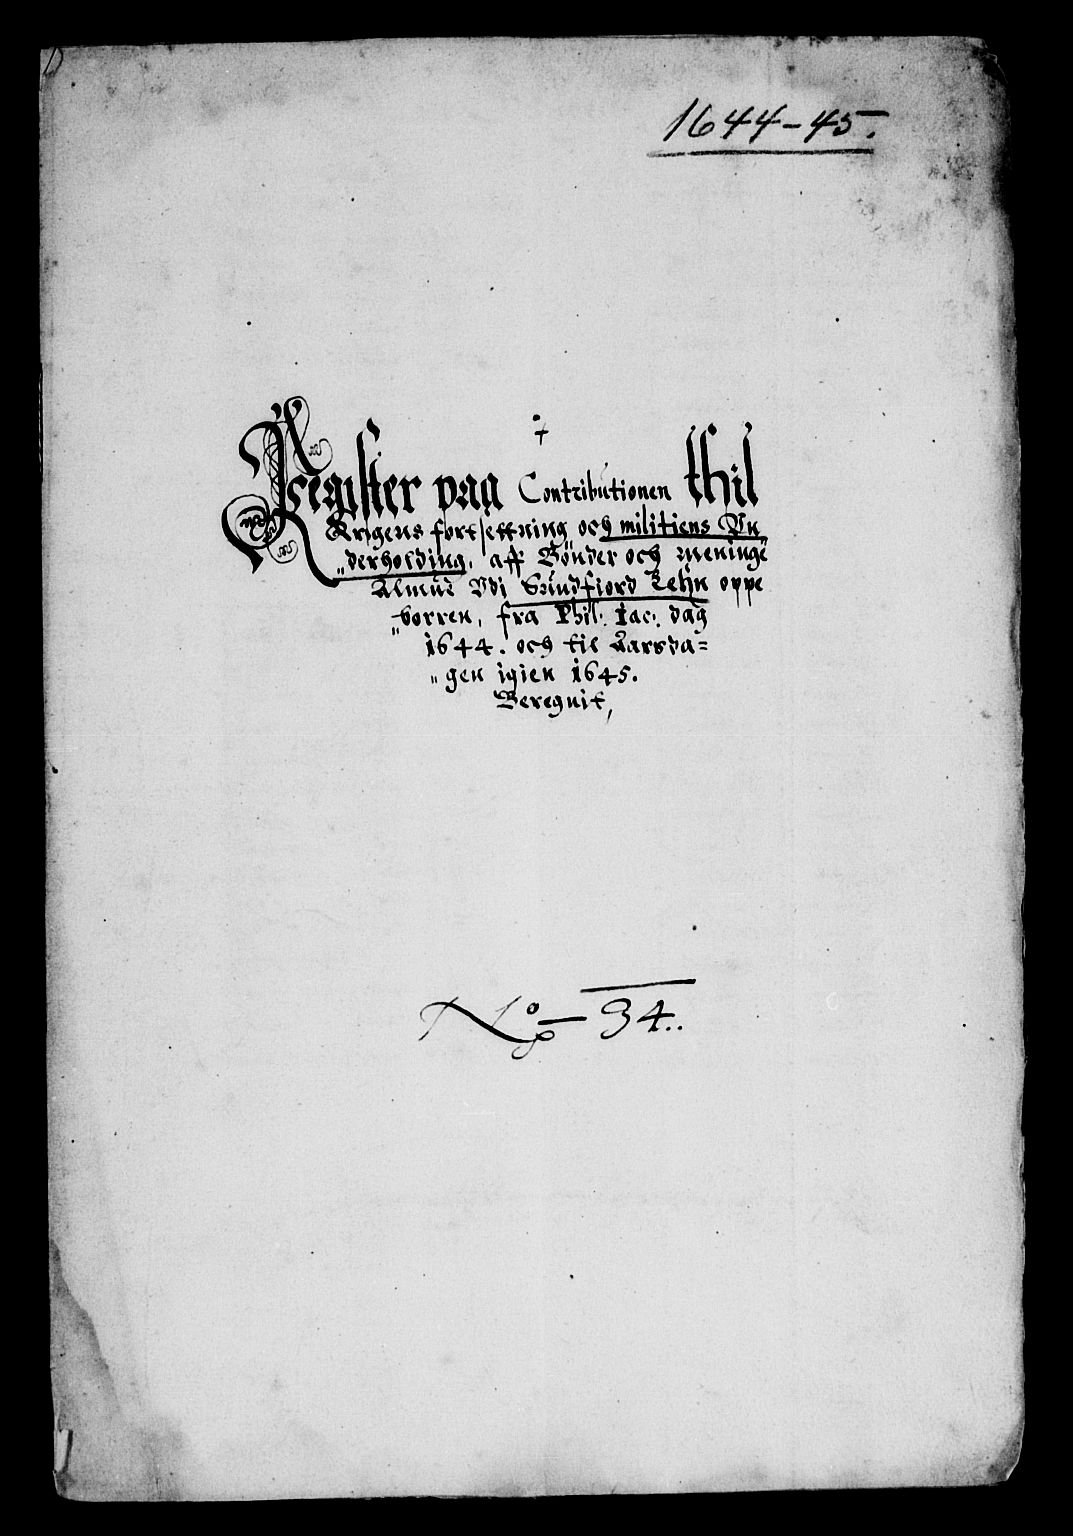 1644-45.
Register paa Contributionen thil
Krigens fortsettning och militiens Un
"derholding, aff Bønder och meninge
Almue Udj Sundfiord Lehn oppe
"borren, fra Phil: Jac: dag
1644. och til Aarsda=
"gen igien 1645.
Beregnit,
No 34..